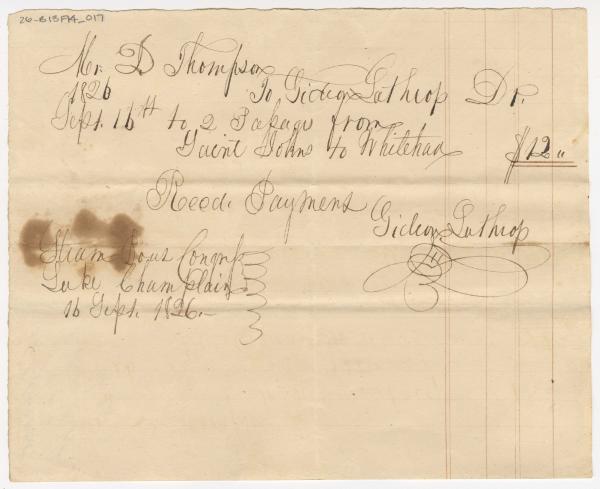 26-B13F14_017
Mr. D Thompson
1826 To Gideon Lathrop Dr.
Sept. 16th to 2 Passage from
Saint Johns to Whitehall $12 "
Recd. Payment
Gideon Lathrop
Steam Boat Congress
Lake Champlain
16 Sept. 1826.